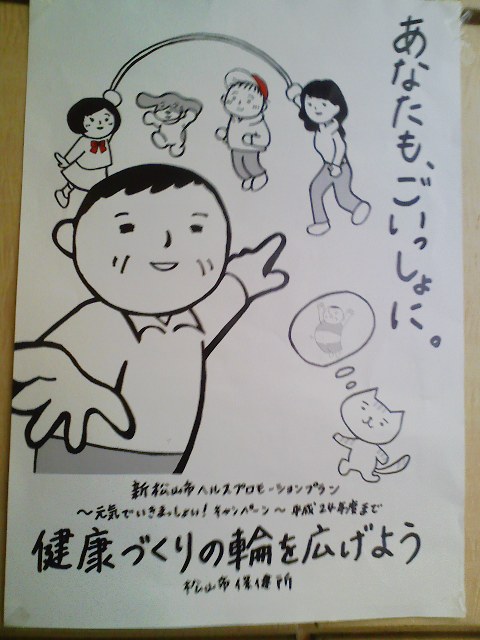 あなたも、ごいっしょに。
新松山市ヘルスプロモーションプラン
～元気でいきまっしょい！キャンペーン～平成24年度まで
健康づくりの輪を広げよう
松山市保健所